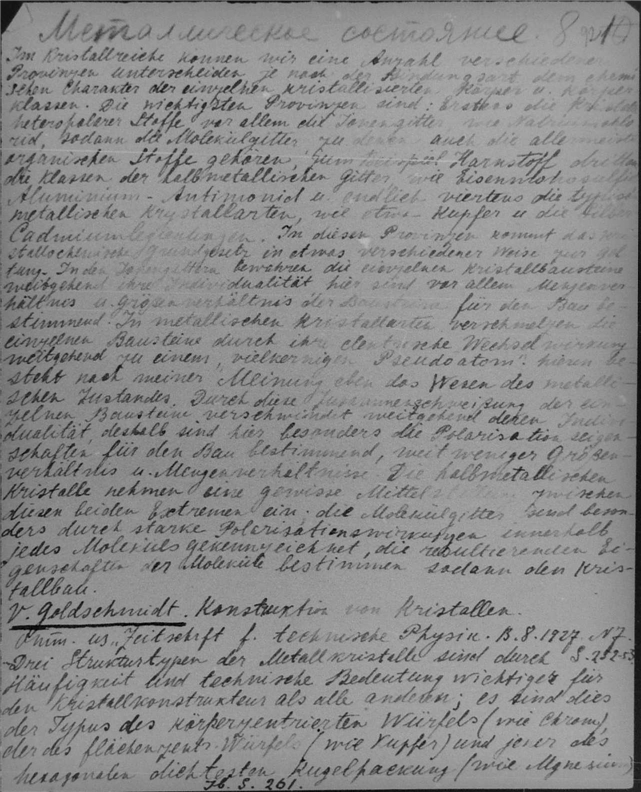 Металлическое состояние. 8
Im Kristallreiche können wir eine Anzahl verschiedener
Provinzen unterscheiden je nach der Bindungsart dem chemi
schen Charakter der einzelnen kristallisierten Körper u. Körper
klassen. Die wichtigsten Provinzen sind: Erstens die Kristalle
heteropolarer Stoffe vor allem die Ionengitter, wie Natriumchlo
rid, sodann die Molekülgitter zu denen auch die allermeisten
organischen Stoffe gehören, zum Harnstoff, drittens
die Klassen der halbmetallischen Gitter, wie
Aluminium-Antimonid u. endlich viertens die typisch
metallischen Krystallarten, wie etwa Kupfer u die Silber
Cadmiumlegierungen. In diesen Provinzen kommt das
stallochemische Grundgesetz in etwas verschiedener Weise zur Gel
tung. In den Ionengittern bewahren die einzelnen Kristallbausteine
weitgehend ihre Individualität hier sind vor allem Mengenver
hältnis u. Grössenverhältnis der Bausteine für den Bau be-
stimmend. In metallischen Kristallarten verschmelzen die
einzelnen Bausteine durch ihre elektrische Wechselwirkung
weitgehend zu einem, vielkernigen Pseudoatom: hierin be
steht nach meiner Meinung eben das Wesen des metalli-
schen Zustandes. Durch diese Zusammenschweißung der ein
zelnen Bausteine verschwindet weitgehend deren Indivi
dualität, deshalb sind hier besonders die Polarisationseigen
schaften für den Bau bestimmend, weit weniger Größen
verhältnis u. Mengenverhältnisse. Die halbmetallischen
Kristalle nehmen eine gewisse Mittelstellung zwischen
diesen beiden Extremen ein; die Molekülgitter sind beson
ders durch starke Polarisationswirkungen innerhalb
jedes Moleküls gekennzeichnet, die resultierenden Ei
genschaften der Moleküle bestimmen sodann den Kris-
tallbau.
V. Goldschmidt. Konstruktion von Kristallen.
Zeitschrift f. technische Physik. B. 8. 1927. N7.
Drei Strukturtypen der Metallkristalle sind durch
Häufigkeit und technische Bedeutung wichtiger für
den Kristallkonstrukteur als alle anderen; es sind dies
der Typus des körperzentrierten Würfels (wie Chrom),
der des flächenzents. Würfels (wie Kupfer) und jener des
hexagonalen dichtesten Kugelpackung (wie Mgnesium)
Ib. S. 261.